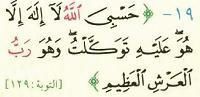 ١٩- ﴿ حَسْبِيَ اللَّهُ لَا إِلَٰهَ إِلَّا
هُوَ ۖ عَلَيْهِ تَوَكَّلْتُ ۖ وَهُوَ رَبُّ
الْعَرْشِ الْعَظِيمِ ﴾ [التوبة: ١٢٩]